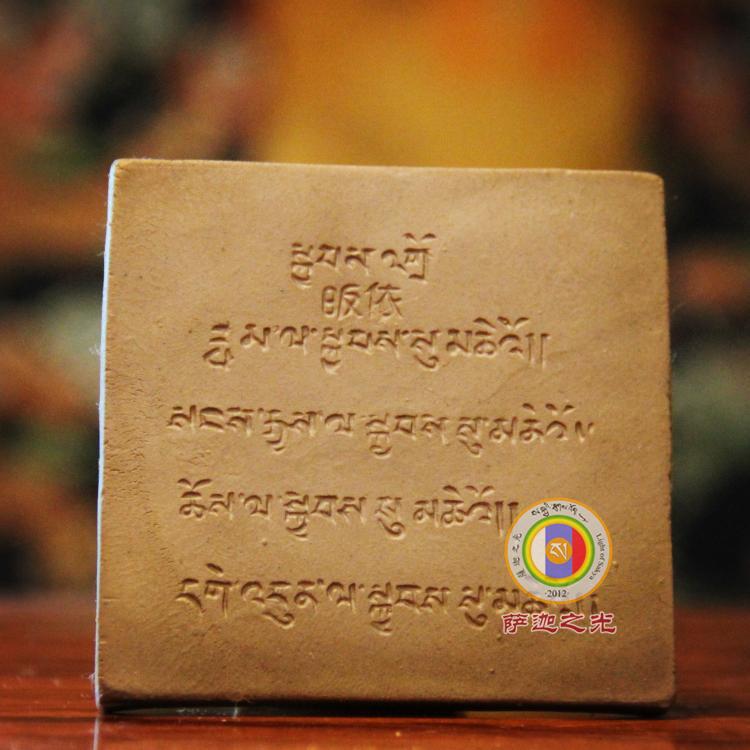 སྐྱབས་འགྲོ
皈依
བླ་མ་ལ་སྐྱབས་སུ་མཆིའོ།།
སངས་རྒྱས་ལ་སྐྱབས་སུ་མཆིའོ།
ཆོས་ལ་སྐྱབས་སུ་མཆིའོ།།
དགེ་འདུན་ལ་སྐྱབས་སུ་མཆིའོ།
萨迦之光
Light of Sakya
·2012·
萨迦之光